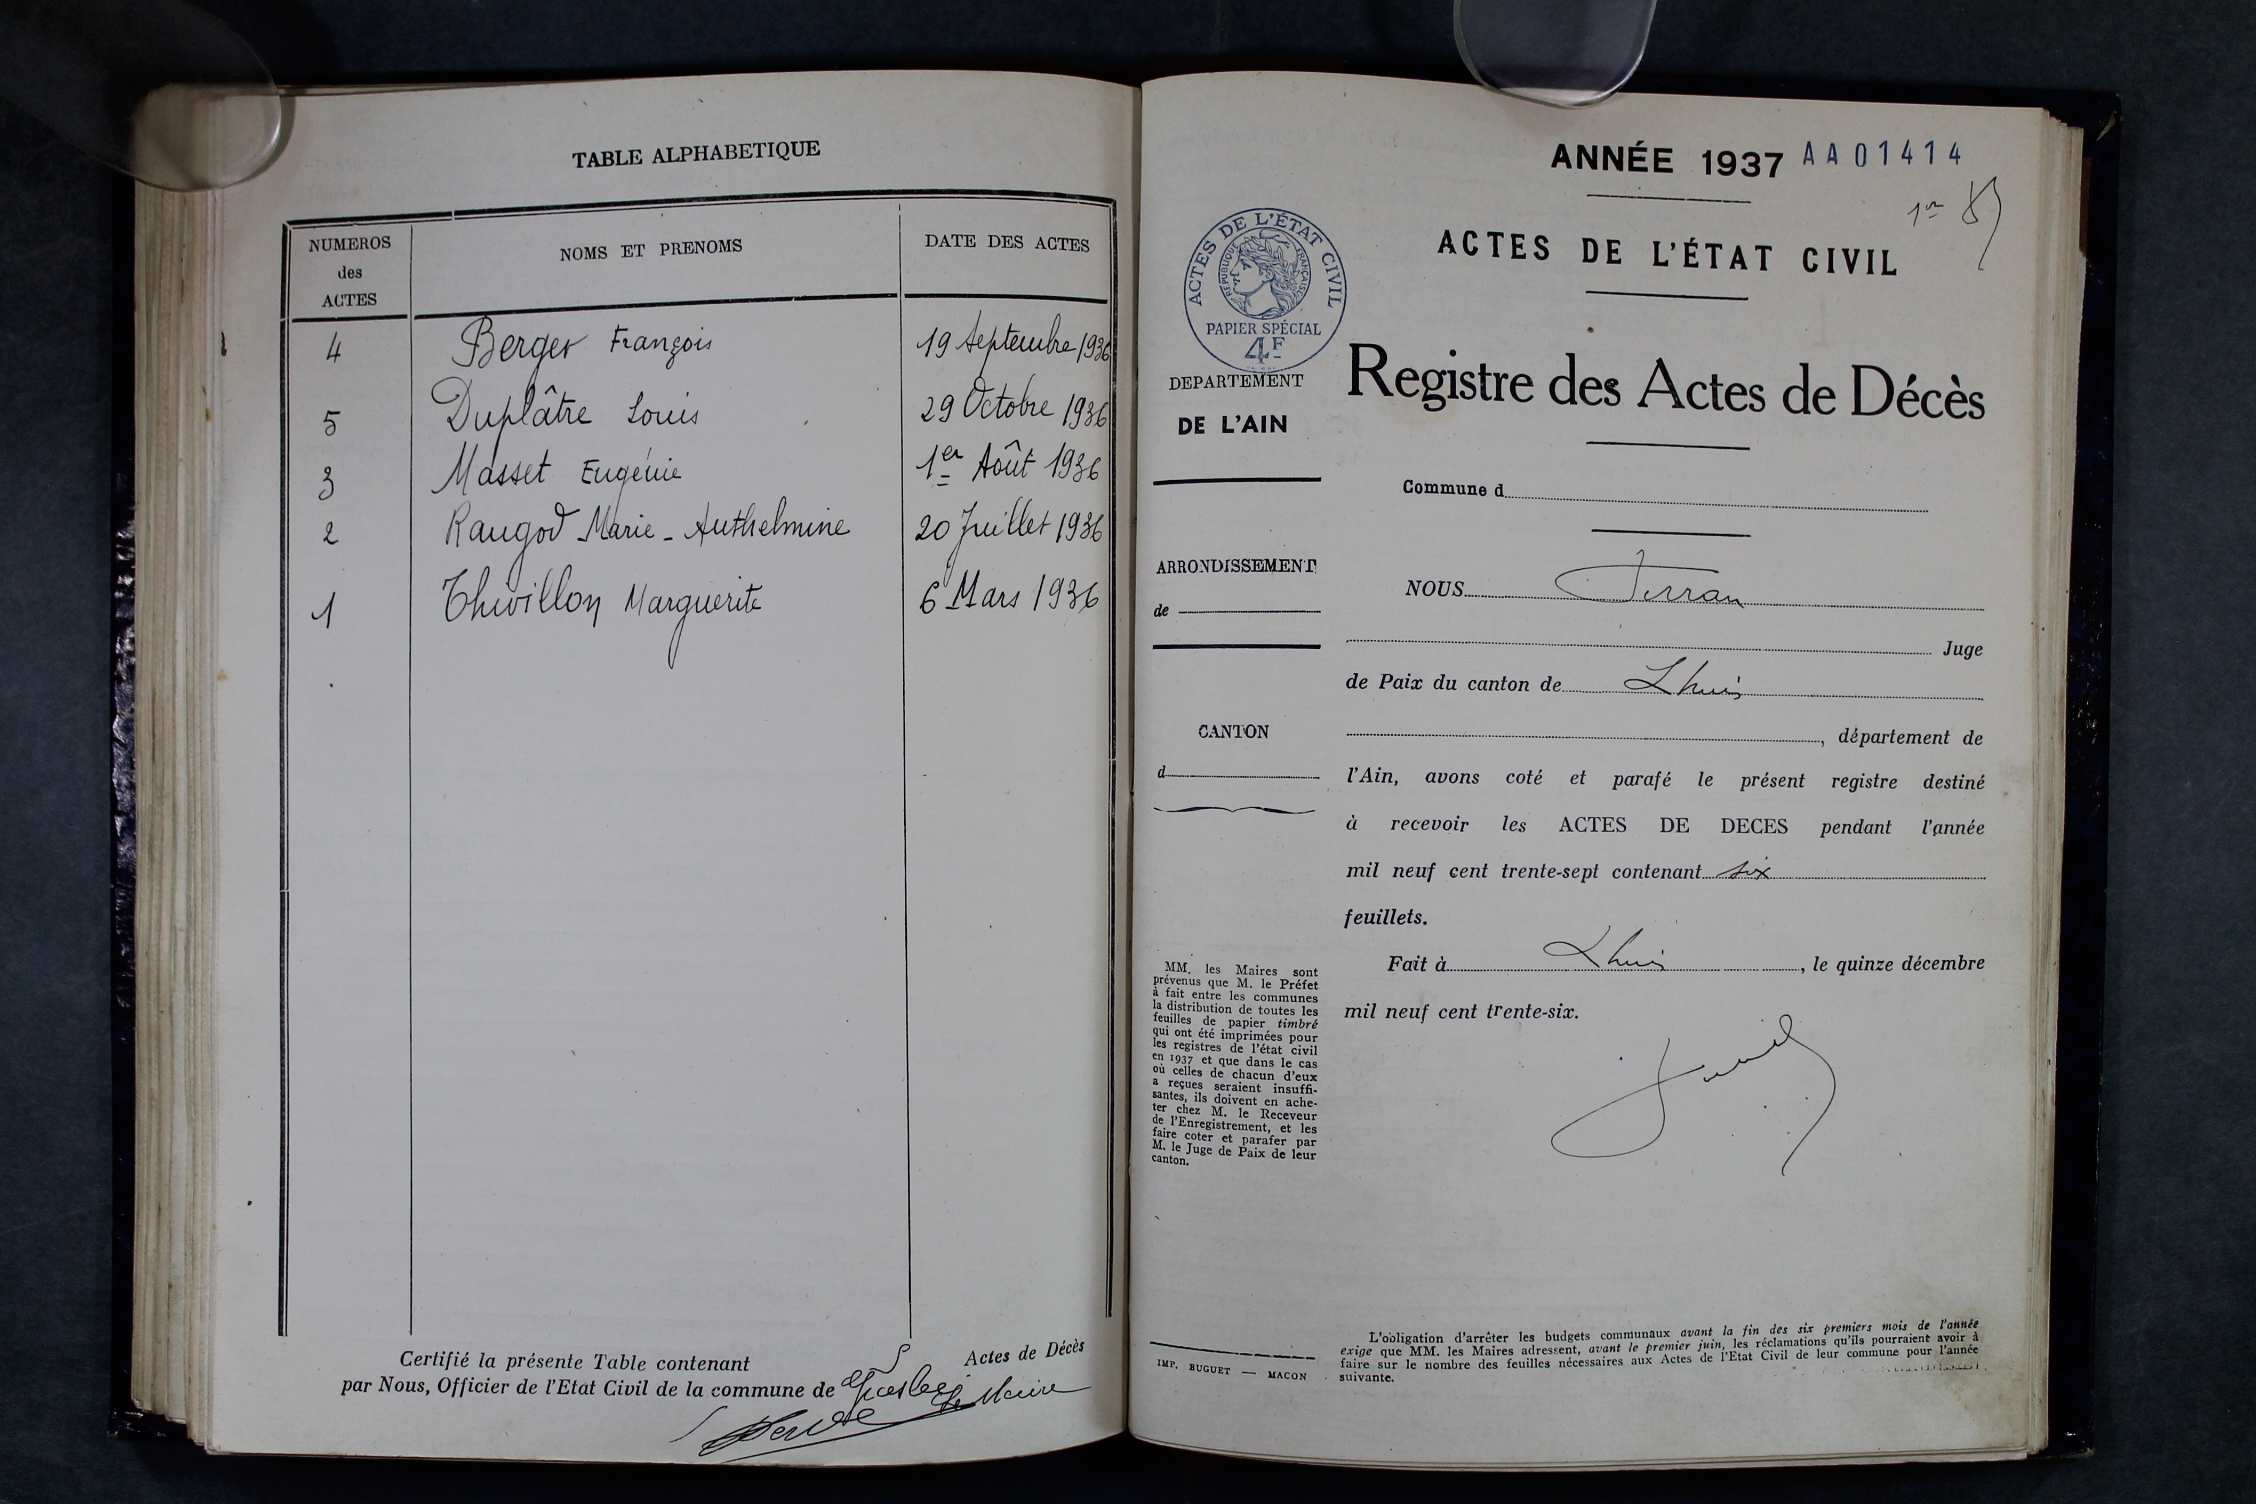 TABLE ALPHABETIQUE
NUMEROS des ACTES
NOMS ET PRENOMS
DATE DES ACTES
4 Berger François 19 Septembre 1936
5 Duplâtre Louis 29 Octobre 1936
3 Masset Eugénie 1er Août 1936
2 Raugod Marie-Anthelmine 20 Juillet 1936
1 Thivillon Marguerite 6 Mars 1936
Certifié la présente Table contenant 5 Actes de Décès
par Nous, Officier de l'Etat Civil de la commune de
Le Maire
ANNÉE 1937 AA01414
1er
ACTES DE L'ÉTAT CIVIL
ACTES DE L'ÉTAT CIVIL
RÉPUBLIQUE FRANÇAISE
PAPIER SPÉCIAL
4F
DEPARTEMENT
DE L'AIN
ARRONDISSEMENT
de
CANTON
d
MM. les Maires sont
prévenus que M. le Préfet
à fait entre les communes
la distribution de toutes les
feuilles de papier timbré
qui ont été imprimées pour
les registres de l'état civil
en 1937 et que dans le cas
où celles de chacun d'eux
a reçues seraient insuffi-
santes, ils doivent en ache-
ter chez M. le Receveur
de l'Enregistrement, et les
faire coter et parafer par
M. le Juge de Paix de leur
canton.
IMP. BUGUET — MACON
Registre des Actes de Décès
Commune d
NOUS Ferran
Juge
de Paix du canton de Lhuis
, département de
l'Ain, avons coté et parafé le présent registre destiné
à recevoir les ACTES DE DECES pendant l'année
mil neuf cent trente-sept contenant six
feuillets.
Fait à Lhuis, le quinze décembre
mil neuf cent trente-six.
L'obligation d'arrêter les budgets communaux avant la fin des six premiers mois de l'année
exige que MM. les Maires adressent, avant le premier juin, les réclamations qu'ils pourraient avoir à
faire sur le nombre des feuilles nécessaires aux Actes de l'Etat Civil de leur commune pour l'année
suivante.